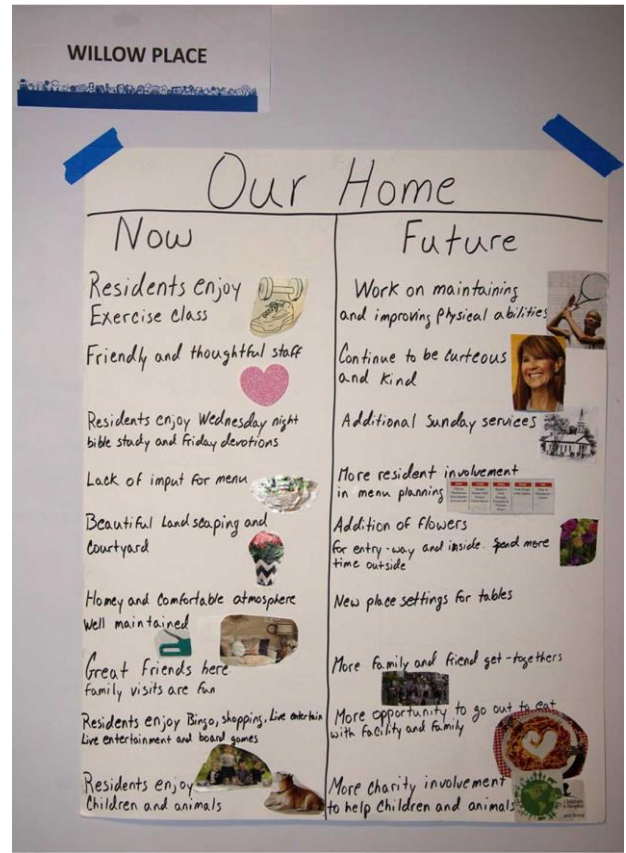 WILLOW PLACE
Our Home
Now
Residents enjoy
Exercise class
Friendly and thoughtful staff
Residents enjoy Wednesday night
bible study and Friday devotions
Lack of imput for menu
Beautiful Landscaping and
Courtyard
Homey and Comfortable atmosphere
Well maintained
Great Friends here
family visits are fun
Residents enjoy Bingo, shopping, Live entertain
Live entertainment and board games
Residents enjoy
Children and animals
Future
Work on maintaining
and improving Physical abilities
Continue to be curteous
and Kind
Additional Sunday services
More resident involvement
in menu planning
Addition of flowers
for entry-way and inside. Spend more
time outside
New place settings for tables
More family and friend get-togethers
More opportunity to go out to eat
with facility and family
More charity involvement
to help Children and animals